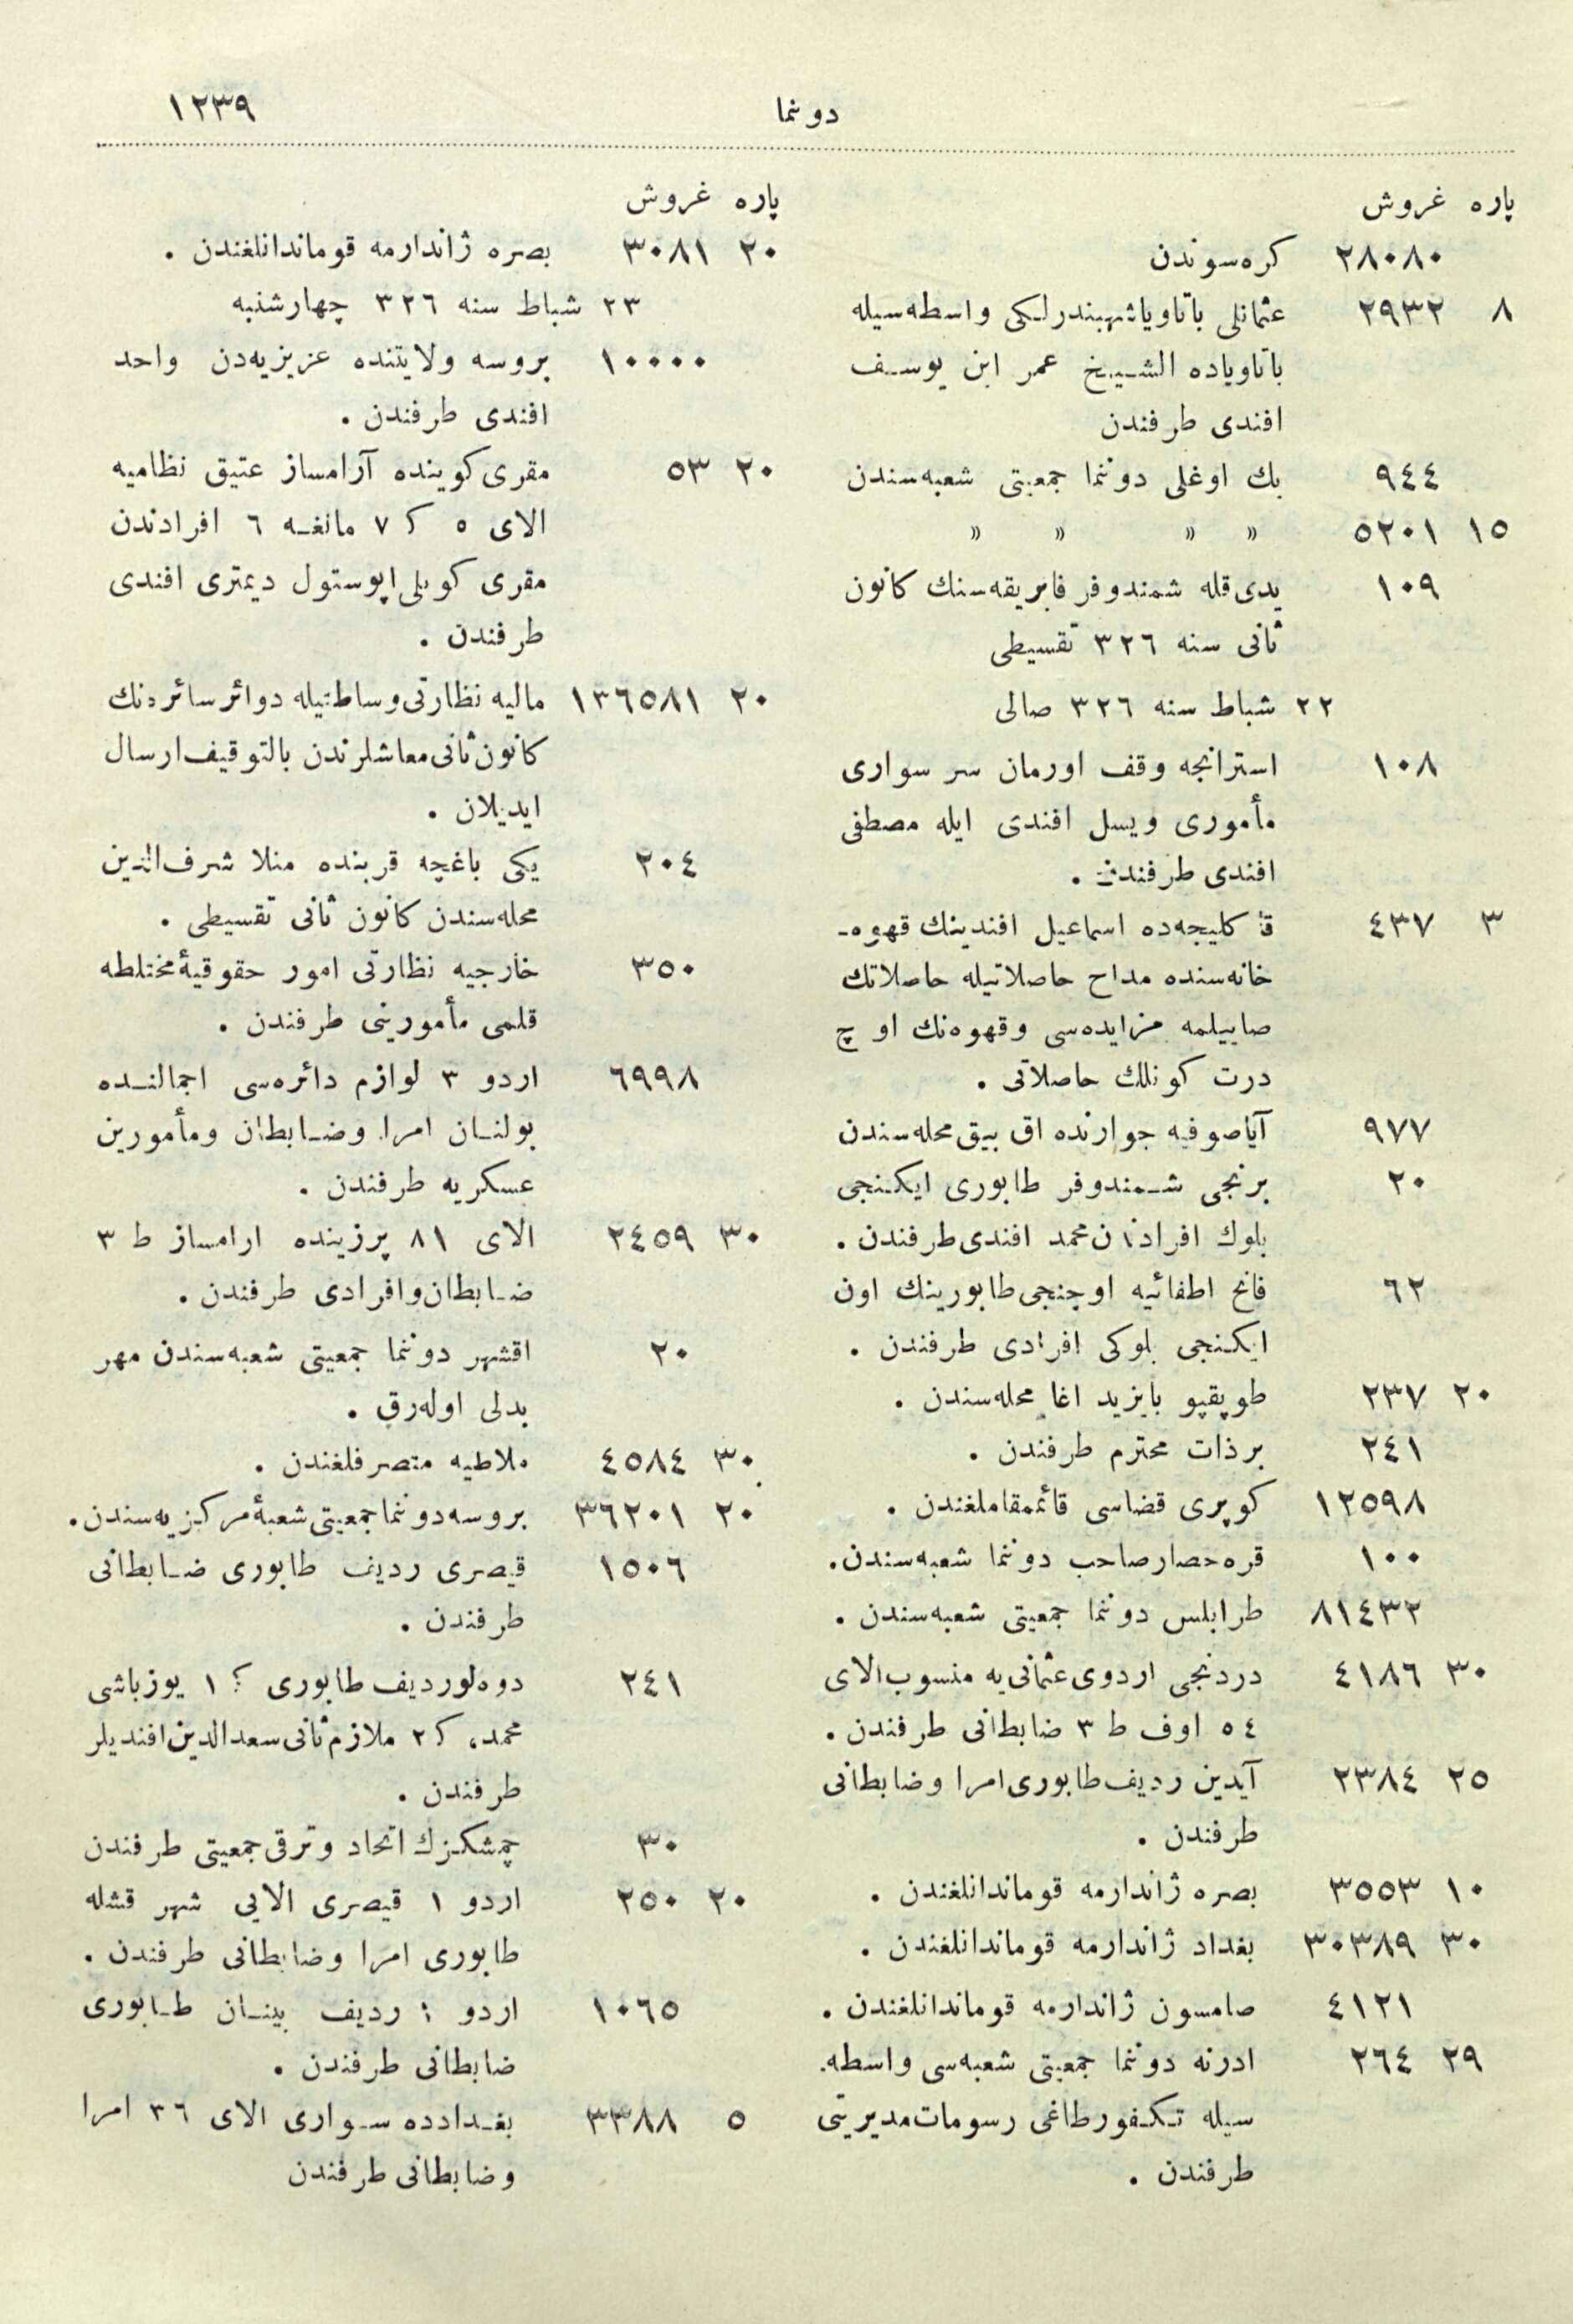 دوننما ١٢٣٩
پاره غروش
٢٨٠٨٠ كره‌سوندن
٨ ٢٩٣٢ عثمانلى باتاويا شهبندرلكى واسطه‌سيله
باتاوياده الشيخ عمر ابن يوسف
افندى طرفندن
٩٤٤ بك اوغلى دوننما جمعيتى شعبه‌سندن
١٥ ٥٢٠١ » » » »
١٠٩ يدى قله شمندوفر فابريقه‌سنك كانون
ثانى سنه ٣٢٦ تقسيطى
٢٢ شباط سنه ٣٢٦ صالى
١٠٨ استرانجه وقف اورمان سر سوارى
مأمورى ويسل افندى ايله مصطفى
افندى طرفندن .
٣ ٤٣٧ كليجه‌ده اسماعيل افندينك قهوه‌ـ
خانه‌سنده مداح حاصلاتيله حاصلاتك
صاييلمه مزايده‌سى وقهوه‌نك اوچ
درت كونلك حاصلاتى .
٩٧٧ آياصوفيه جوارنده اق بيق محله‌سندن
٢٠ برنجى شمندوفر طابورى ايكنجى
بلوك افرادندن محمد افندى طرفندن .
٦٢ فاتح اطفائيه اوچنجى طابورينك اون
ايكنجى بلوكى افرادى طرفندن .
٢٠ ٢٣٧ طوپقپو بايزيد اغا محله‌سندن .
٢٤١ برذات محترم طرفندن .
١٢٥٩٨ كوپرى قضاسى قائممقاملغندن .
١٠٠ قره‌حصار صاحب دوننما شعبه‌سندن.
٨١٤٣٢ طرابلس دوننما جمعيتى شعبه‌سندن .
٣٠ ٤١٨٦ دردنجى اردوى عثمانى‌يه منسوب الاى
٥٤ اوف ط ٣ ضابطانى طرفندن .
٢٥ ٢٣٨٤ آيدين رديف طابورى امرا وضابطانى
طرفندن .
١٠ ٣٥٥٣ بصره ژاندارمه قوماندانلغندن .
٣٠ ٣٠٣٨٩ بغداد ژاندارمه قوماندانلغندن .
٤١٢١ صامسون ژاندارمه قوماندانلغندن .
٢٩ ٢٦٤ ادرنه دوننما جمعيتى شعبه‌سى واسطه‌ـ
سيله تكفورطاغى رسومات مديريتى
طرفندن .
پاره غروش
٢٠ ٣٠٨١ بصره ژاندارمه قوماندانلغندن .
٢٣ شباط سنه ٣٢٦ چهارشنبه
١٠٠٠٠ بروسه ولايتنده عزيزيه‌دن واحد
افندى طرفندن .
٢٠ ٥٣ مقرى كوينده آرامساز عتيق نظاميه
الاى ٥ ك ٧ مانغه ٦ افرادندن
مقرى كويلى اپوستول ديمترى افندى
طرفندن .
٢٠ ١٣٦٥٨١ ماليه نظارتى وساطتيله دوائر سائره‌نك
كانون ثانى معاشلرندن بالتوقيف ارسال
ايديلان .
٢٠٤ يكى باغچه قربنده منلا شرف‌الدين
محله‌سندن كانون ثانى تقسيطى .
٣٥٠ خارجيه نظارتى امور حقوقيۀ مختلطه
قلمى مأمورينى طرفندن .
٦٩٩٨ اردو ٣ لوازم دائره‌سى اجمالنده
بولنان امرا وضابطان ومأمورين
عسكريه طرفندن .
٣٠ ٢٤٥٩ الاى ٨١ پرزينده ارامساز ط ٣
ضابطان وافرادى طرفندن .
٢٠ اقشهر دوننما جمعيتى شعبه‌سندن مهر
بدلى اوله‌رق .
٣٠ ٤٥٨٤ ملاطيه متصرفلغندن .
٢٠ ٣٦٢٠١ بروسه دوننما جمعيتى شعبۀ مركزيه‌سندن.
١٥٠٦ قيصرى رديف طابورى ضابطانى
طرفندن .
٢٤١ دوه‌لو رديف طابورى ك ١ يوزباشى
محمد، ك ٢ ملازم ثانى سعدالدين افنديلر
طرفندن .
٣٠ چمشكزك اتحاد وترقى جمعيتى طرفندن
٢٠ ٢٥٠ اردو ١ قيصرى الايى شهر قشله
طابورى امرا وضابطانى طرفندن .
١٠٦٥ اردو رديف بينان طابورى
ضابطانى طرفندن .
٥ ٣٣٨٨ بغدادده سوارى الاى ٣٦ امرا
وضابطانى طرفندن